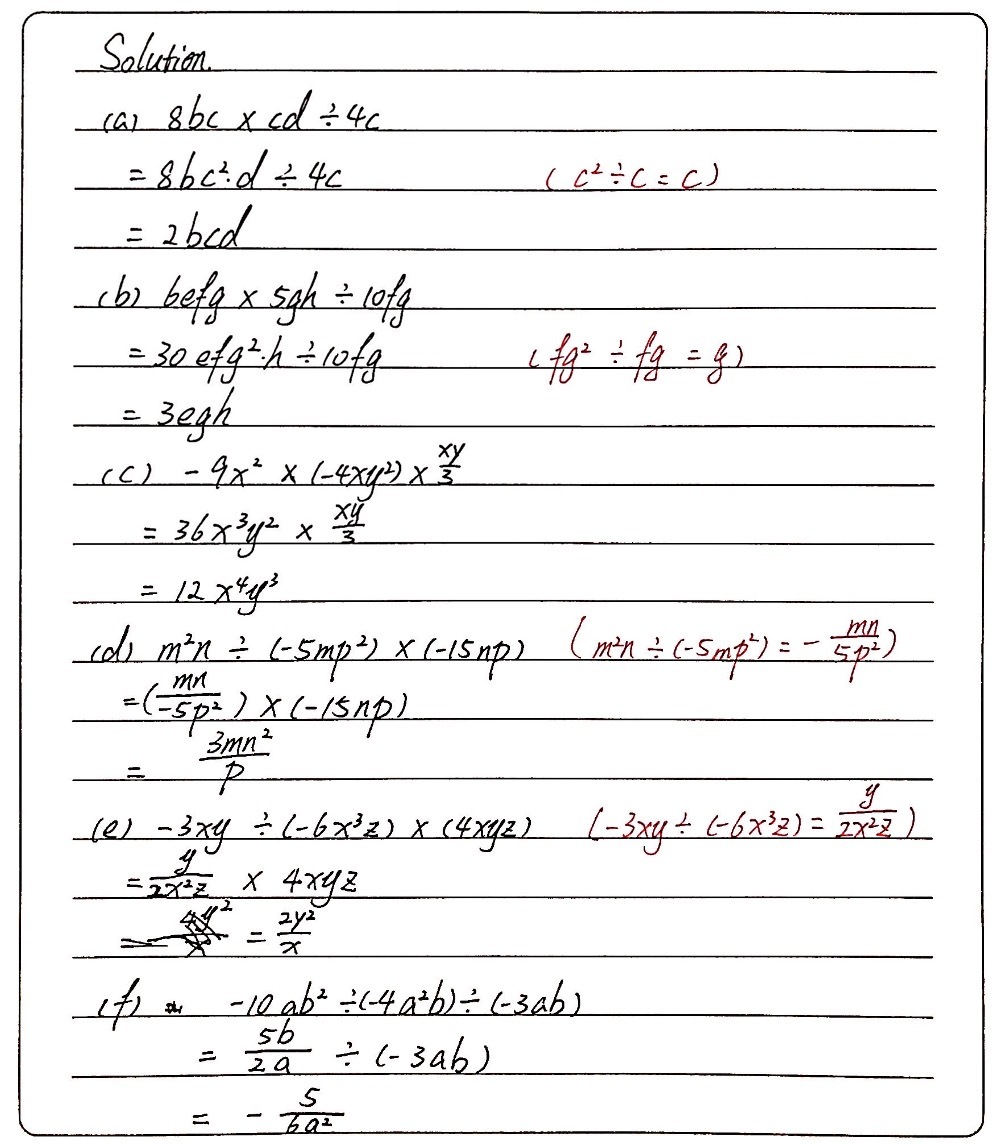 Solution.
(a) 8bc × cd ÷ 4c
= 8bc²·d ÷ 4c (c² ÷ c = c)
= 2bcd
(b) 6efg × 5gh ÷ 10fg
= 30efg²·h ÷ 10fg (fg² ÷ fg = g)
= 3egh
(c) -9x² × (-4xy²) × xy/3
= 36x³y² × xy/3
= 12x⁴y³
(d) m²n ÷ (-5mp²) × (-15np) (m²n ÷ (-5mp²) = - mn/5p²)
= (mn/-5p²) × (-15np)
= 3mn²/p
(e) -3xy ÷ (-6x³z) × (4xyz) (-3xy ÷ (-6x³z) = y/2x²z)
= y/2x²z × 4xyz
= 2y²/x
(f) -10ab² ÷ (-4a²b) ÷ (-3ab)
= 5b/2a ÷ (-3ab)
= - 5/6a²